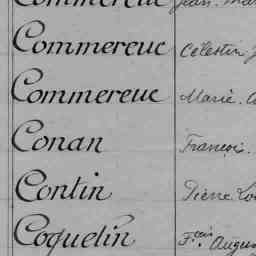 Commereuc Jean. Mar
Commereuc Célestin J
Commereuc Marie. A
Conan François.
Contin Pierre. Lou
Coquelin F.ois Augus